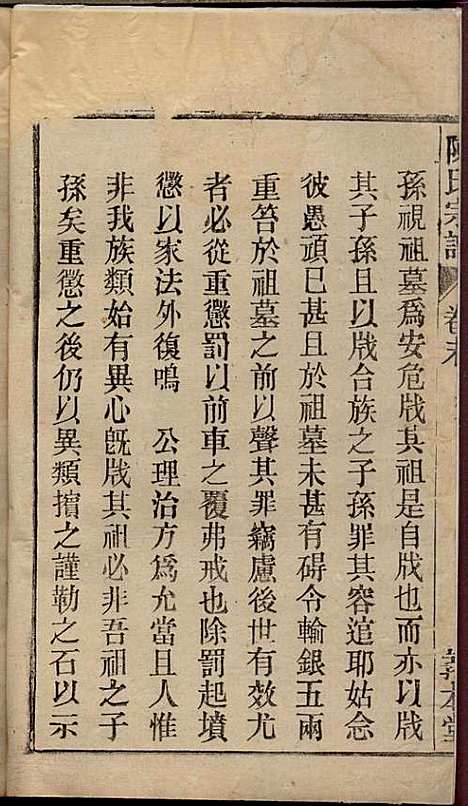 陳氏宗譜 卷末 敦本堂
孫視祖墓爲安危戕其祖是自戕也而亦以戕
其子孫且以戕合族之子孫罪其容逭耶姑念
彼愚頑已甚且於祖墓未甚有碍令輸銀五兩
重笞於祖墓之前以聲其罪竊慮後世有效尤
者必從重懲罰以前車之覆弗戒也除罰起墳
懲以家法外復鳴 公理治方爲允當且人惟
非我族類始有異心旣戕其祖必非吾祖之子
孫矣重懲之後仍以異類擯之謹勒之石以示